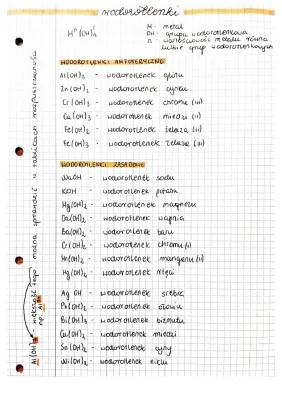 wodorotlenki
M - metal
OH - grupa wodorotlenowa
n - wartościowość metalu równa
liczbie grup wodorotlenowych
WODOROTLENKI AMFOTERYCZNE
Al(OH)₃ - wodorotlenek glinu
Zn(OH)₂ - wodorotlenek cynku
Cr(OH)₃ - wodorotlenek chromu (III)
Cu(OH)₂ - wodorotlenek miedzi (II)
Fe(OH)₂ - wodorotlenek żelaza (II)
Fe(OH)₃ - wodorotlenek żelaza (III)
WODOROTLENKI ZASADOWE
NaOH - wodorotlenek sodu
KOH - wodorotlenek potasu
Mg(OH)₂ - wodorotlenek magnezu
Ca(OH)₂ - wodorotlenek wapnia
Ba(OH)₂ - wodorotlenek baru
Cr(OH)₂ - wodorotlenek chromu(II)
Mn(OH)₂ - wodorotlenek manganu (II)
Hg(OH)₂ - wodorotlenek rtęci
AgOH - wodorotlenek srebra
Pb(OH)₂ - wodorotlenek ołowiu
Bi(OH)₃ - wodorotlenek bizmutu
Cu(OH)₂ - wodorotlenek miedzi
Sn(OH)₂ - wodorotlenek cyny
Ni(OH)₂ - wodorotlenek niklu
Al(OH)₃ - większość tego można sprawdzić w tablicach rozpuszczalności
np. Al